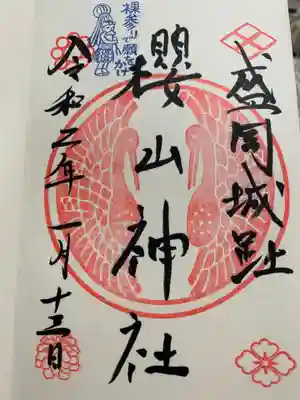 盛岡城跡
櫻山神社
裸参り
願をかけ
令和二年一月十三日